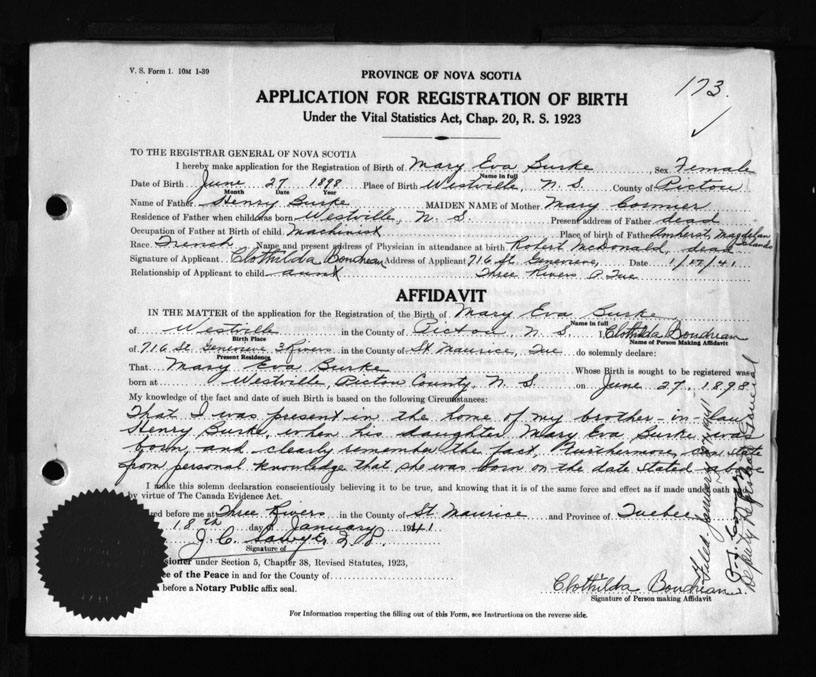 V. S. Form 1. 10M 1-39
173.
PROVINCE OF NOVA SCOTIA
APPLICATION FOR REGISTRATION OF BIRTH
Under the Vital Statistics Act, Chap. 20, R. S. 1923
TO THE REGISTRAR GENERAL OF NOVA SCOTIA
I hereby make application for the Registration of Birth of Mary Eva Burke Sex Female
Name in full
Date of Birth June 27 1898 Place of Birth Westville, N. S. County of Pictou
Month Date Year
Name of Father Henry Burke MAIDEN NAME of Mother Mary Cormier
Residence of Father when child was born Westville, N. S. Present address of Father dead
Occupation of Father at Birth of child Machinist Place of birth of Father Amherst, Magdelan Islands
Race French Name and present address of Physician in attendance at birth Robert McDonald, dead
Signature of Applicant Clothilda Boudreau Address of Applicant 716 St. Genevieve, Date 1/17/41
Relationship of Applicant to child aunt Three Rivers P. Que
AFFIDAVIT
IN THE MATTER of the application for the Registration of the Birth of Mary Eva Burke
Name in full
of Westville in the County of Pictou, N. S. I, Clothilda Boudreau
Birth Place Name of Person Making Affidavit
of 716 St. Genevieve 3 Rivers in the County of St Maurice, Que do solemnly declare:
Present Residence
That Mary Eva Burke Whose Birth is sought to be registered was
born at Westville, Pictou County, N. S. on June 27, 1898
My knowledge of the fact and date of such Birth is based on the following Circumstances:
That I was present in the home of my brother-in-law
Henry Burke, when his daughter Mary Eva Burke was
born, and clearly remember the fact. Furthermore, can state
from personal knowledge that she was born on the date stated above
I make this solemn declaration conscientiously believing it to be true, and knowing that it is of the same force and effect as if made under oath
by virtue of The Canada Evidence Act.
red before me at Three Rivers in the County of St Maurice and Province of Quebec
18th day of January 1941
J. C. J. P.
Signature of
sioner under Section 5, Chapter 38, Revised Statutes, 1923,
ce of the Peace in and for the County of
before a Notary Public affix seal.
Clothilda Boudreau
Signature of Person making Affidavit
For Information respecting the filling out of this Form, see Instructions on the reverse side.
Filed January 1941
Deputy Registrar General